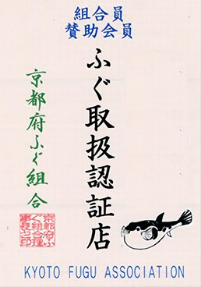 組合員
賛助会員
ふぐ取扱認証店
京都府ふぐ組合
KYOTO FUGU ASSOCIATION